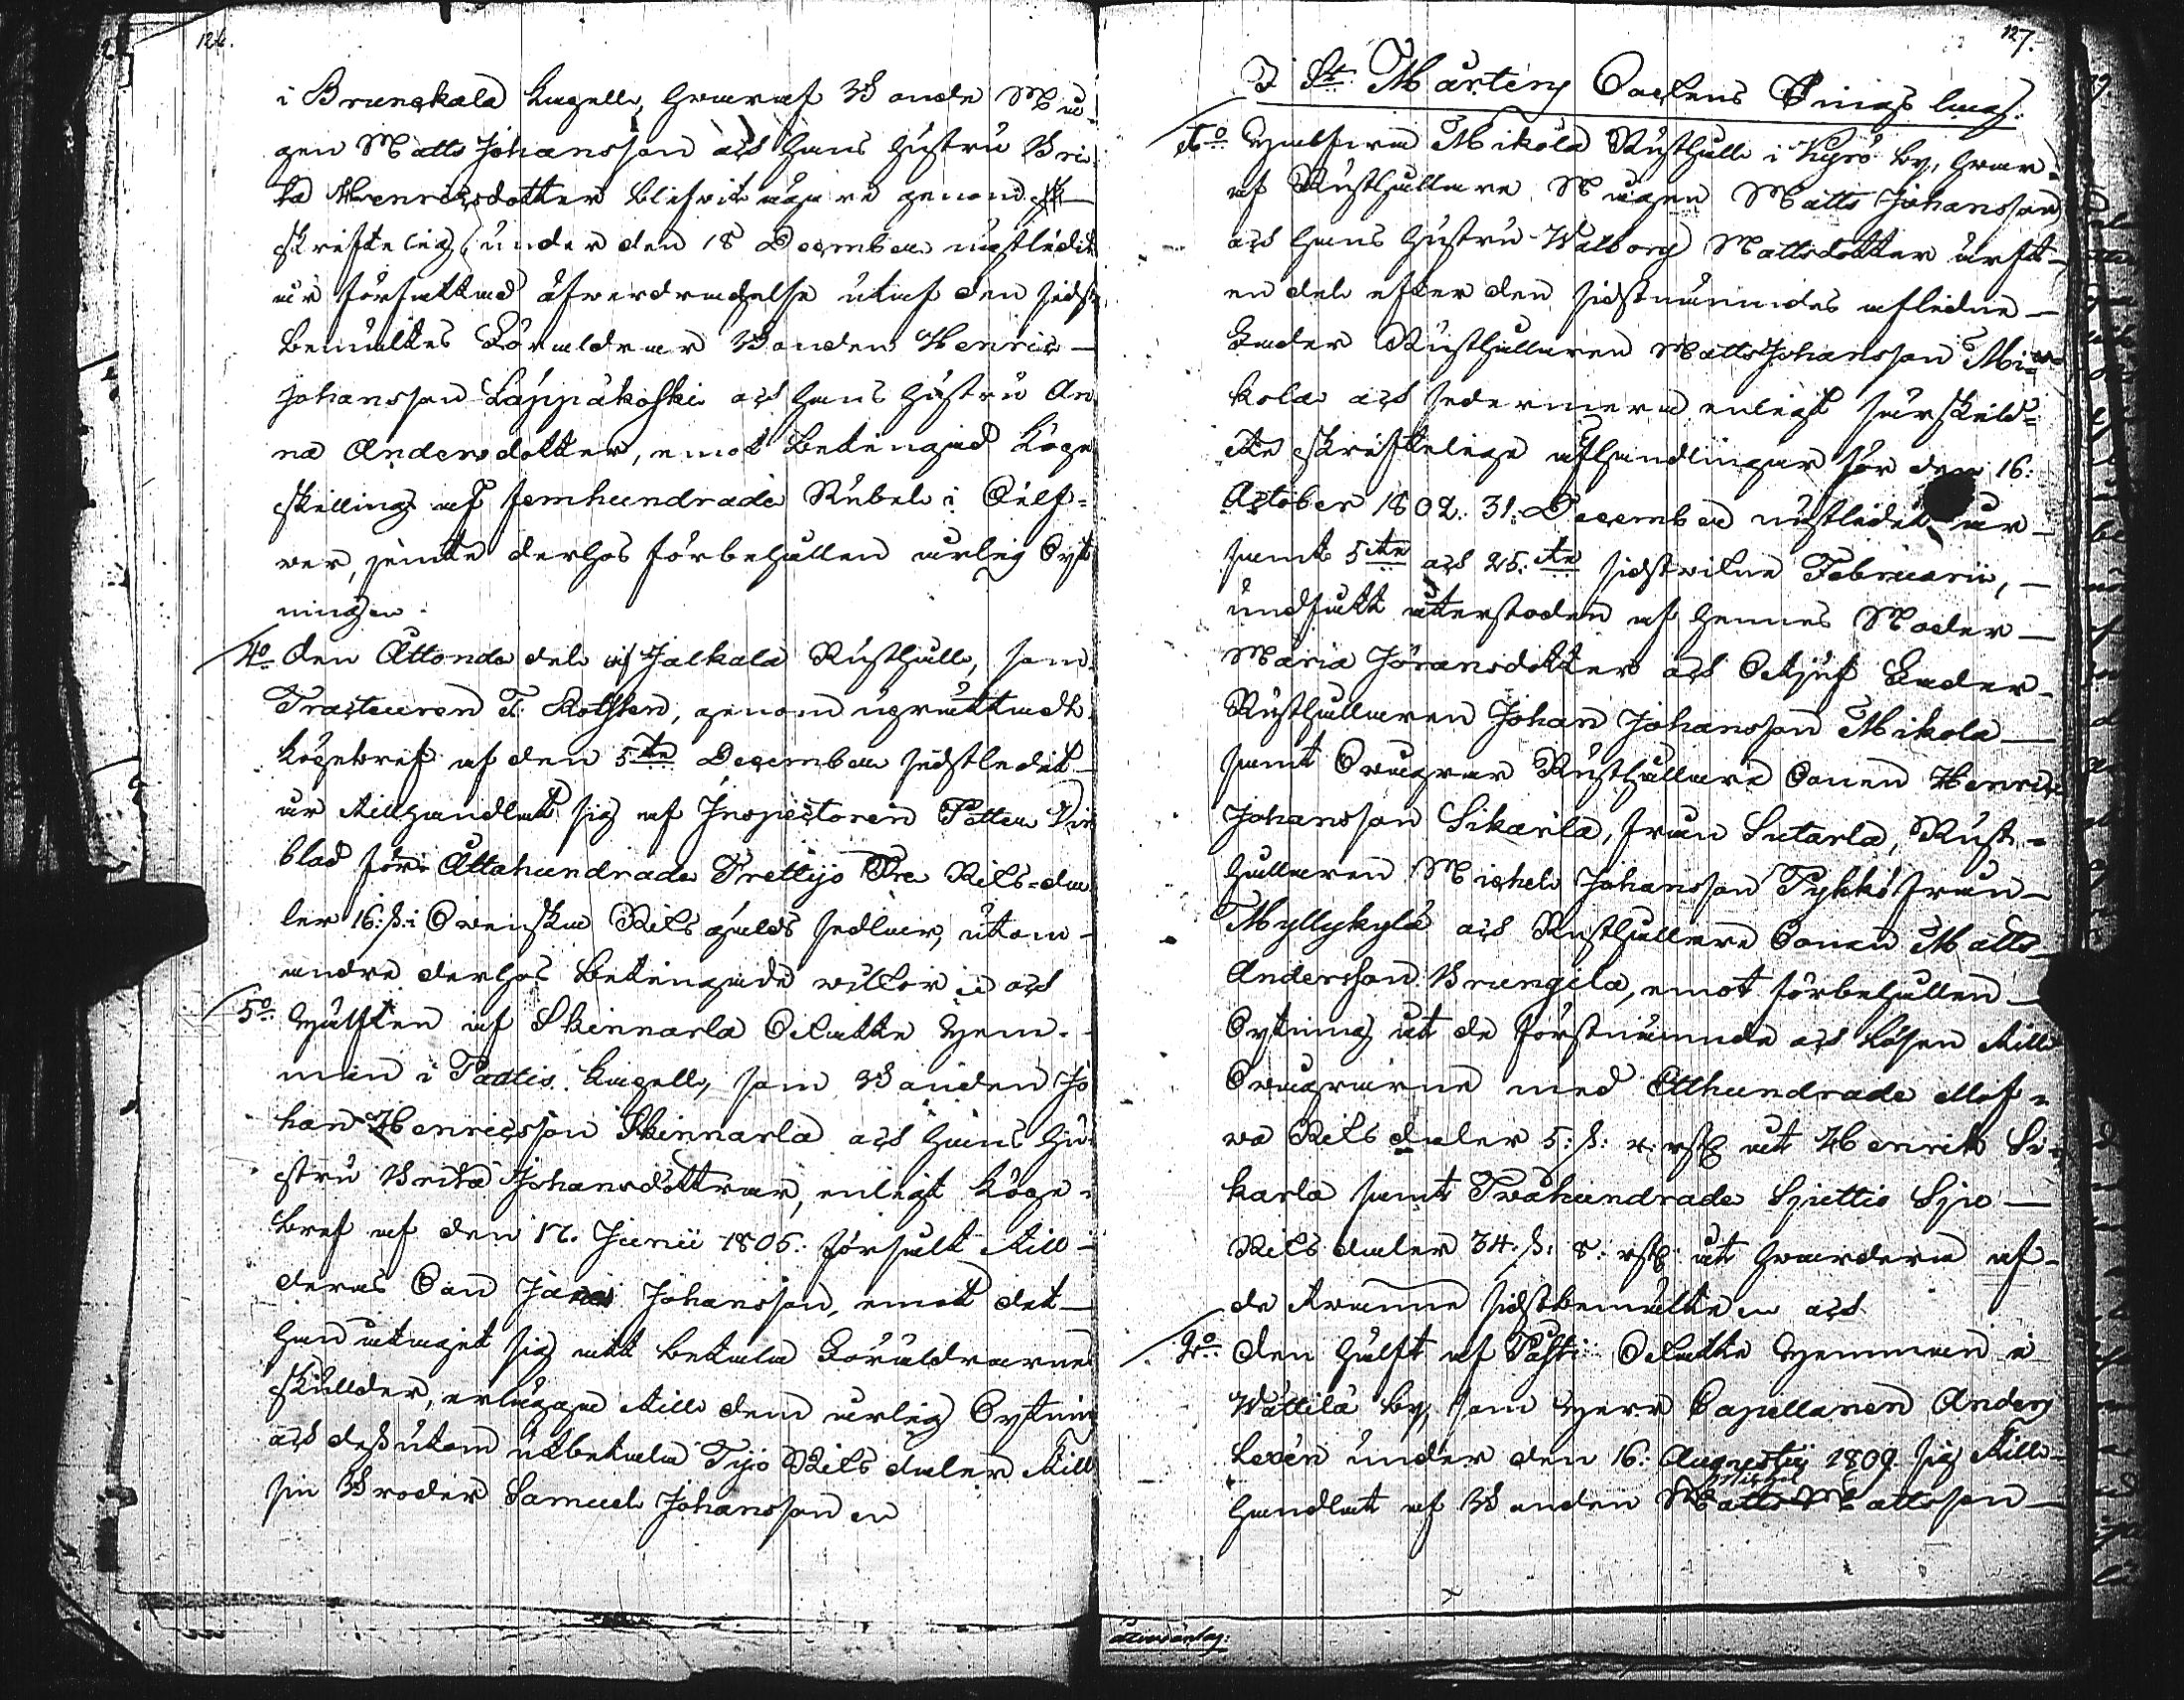 126.
i Brunskala Capell, hvaraf Bonde Må-
gen Matts Johansson och hans hustru Bri-
ta Henricsdotter blifvit ägare genom
skrifteligen under den 18 December nästledit
år författad åfverdragelse utaf den sidst
bemältes Föräldrar Bonden Henric
Johansson Läppäkoski och hans hustru An
na Andersdotter, emot betingad Köpe
skilling af femhundrade Rubel i Silf-
wer, jemte derhos förbehållen årlig Syt
ningen.
4o den Åttonde del af Jalkala Rusthåll, som
Tracteuren F. Rothsten, genom uprättadt
Köpebref af den 5te December sidstledit
år tillhandlat sig af Inspectoren Petter
blad för Åttahundrade Trettijo Tre Riks-da
ler 16: s: i Svenska Riksgälds sedlar, utom
andre derhos betingade wilkor; och
5o Hälften af Skinnarla Skatte Hem-
man i Pattis Capell, som Bonden Jo
han Henricsson Skinnarla och hans hu
stru Brita Johansdotter, enligt Köpe-
bref af den 17. Junii 1805. försålt till
deras Son Johansson, emot det
han åtagit sig att betala Föräldrarnes
skulder, erlägga till dem årlig Sytning
och dessutom utbetala Tijo Riksdaler till
sin Broder Samuel Johansson
127.
I St Mårtens Sockens Tings lag:
1o Hälften Mikola Rusthåll i Kyrö by, hvar-
af Rusthållare Mågen Matts Johansson
och hans hustru Walborg Mattsdotter ärft
en del efter den sidstnämndes afledne
Fader Rusthållaren Matts Johansson Mi-
kola och sedermera enligt särskild-
te skriftelige afhandlingar för den 16:
October 1802. 31: December nästledit år
samt 5te och 25:te sidstvikne Februarii,
undfått återstoden af hennes Moder
Maria Jöransdotter och Styf Fader
Rusthållaren Johan Johansson Mikola
samt Svågrar Rusthållare Sonen Henric
Johansson Sikarla, från Sutarla, Rust-
hållaren Michel Johansson Pykkö från
Myllykylä och Rusthållare Sonen Matts
Andersson Brungila, emot förbehållen
Sytning åt de förstnämnde och lösen till
Svågrarne med Etthundrade ellof-
va Riksdaler 5: s: 4: rst åt Henrik Si-
karla samt Tvåhundrade Sjuttio Sju
Riksdaler 34. s: 8: rst åt hvardera af
de tvänne sidstbemälte och
2o den hälft af Pasti Skatte Hemman i
Wättilä by, som Herr Capellanen Anders
Lexén under den 16: Augusti 1809 sig till-
handlat af Bonden Michel Mattsson